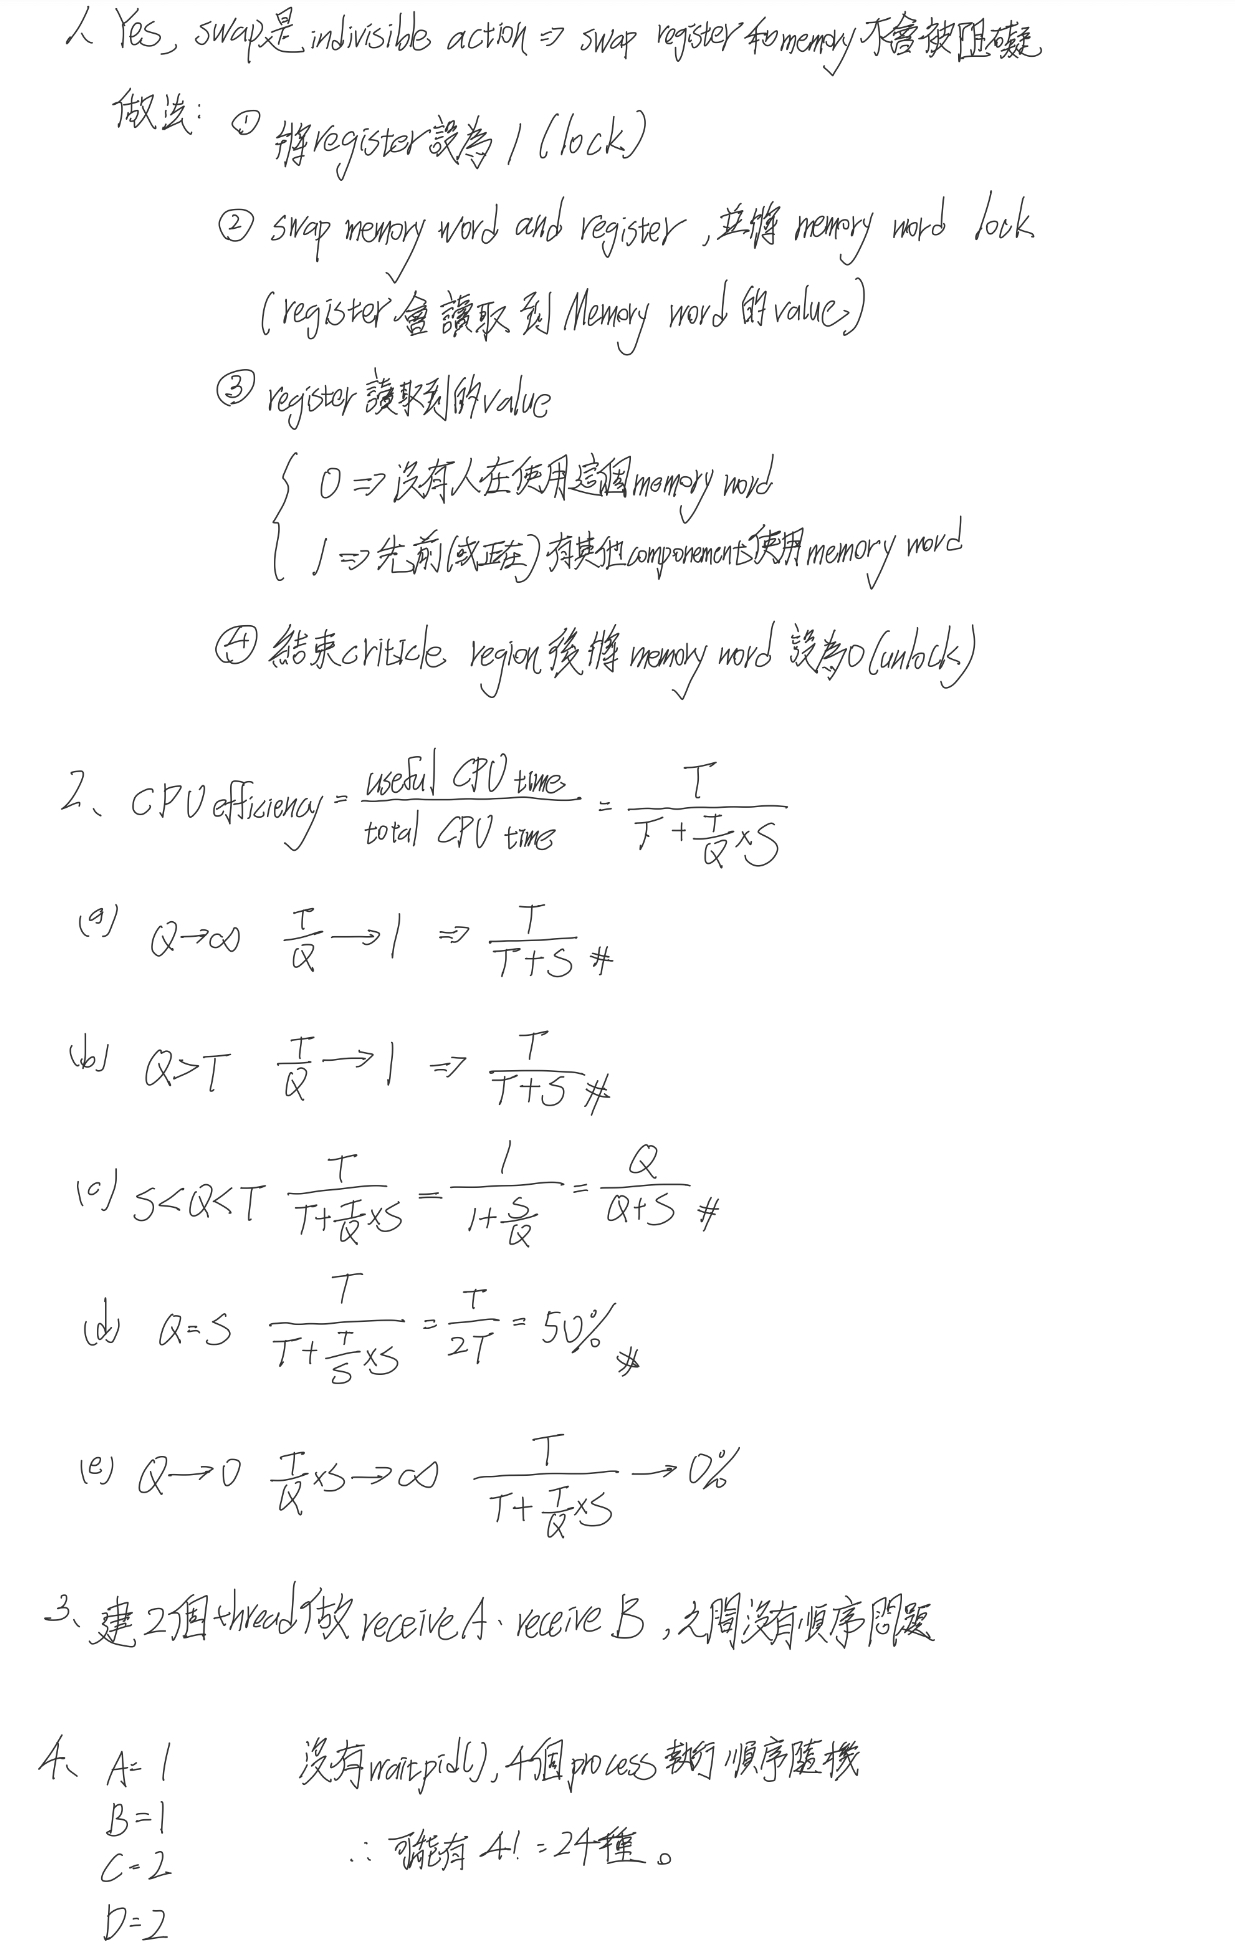 1、Yes, swap是indivisible action => swap register和memory不會被阻礙
做法: ① 將register設為1 (lock)
② swap memory word and register, 並將 memory word lock
(register會讀取到Memory word的value)
③ register讀取到的value
{ 0 => 沒有人在使用這個memory word
1 => 先前(或正在)有其他componement使用memory word
④ 結束criticle region後將memory word設為0(unlock)
2、CPU efficiency = useful CPU time / total CPU time = T / (T + T/Q × S)
(a) Q→∞ T/Q → 1 => T / (T+S) #
(b) Q>T T/Q → 1 => T / (T+S) #
(c) S<Q<T T / (T + T/Q × S) = 1 / (1 + S/Q) = Q / (Q+S) #
(d) Q=S T / (T + T/S × S) = T / 2T = 50% #
(e) Q→0 T/Q × S → ∞ T / (T + T/Q × S) → 0%
3、建2個thread做receive A、receive B, 之間沒有順序問題
4、A=1 沒有waitpid(), 4個process執行順序隨機
B=1
∴ 可能有 4! = 24種。
C=2
D=2